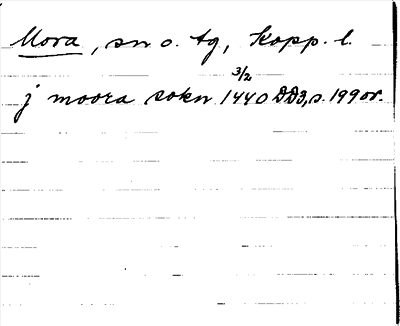 Mora, sn o. tg, Kopp. l.
3/2
j moora sokn 1440 DD3, s. 199 or.